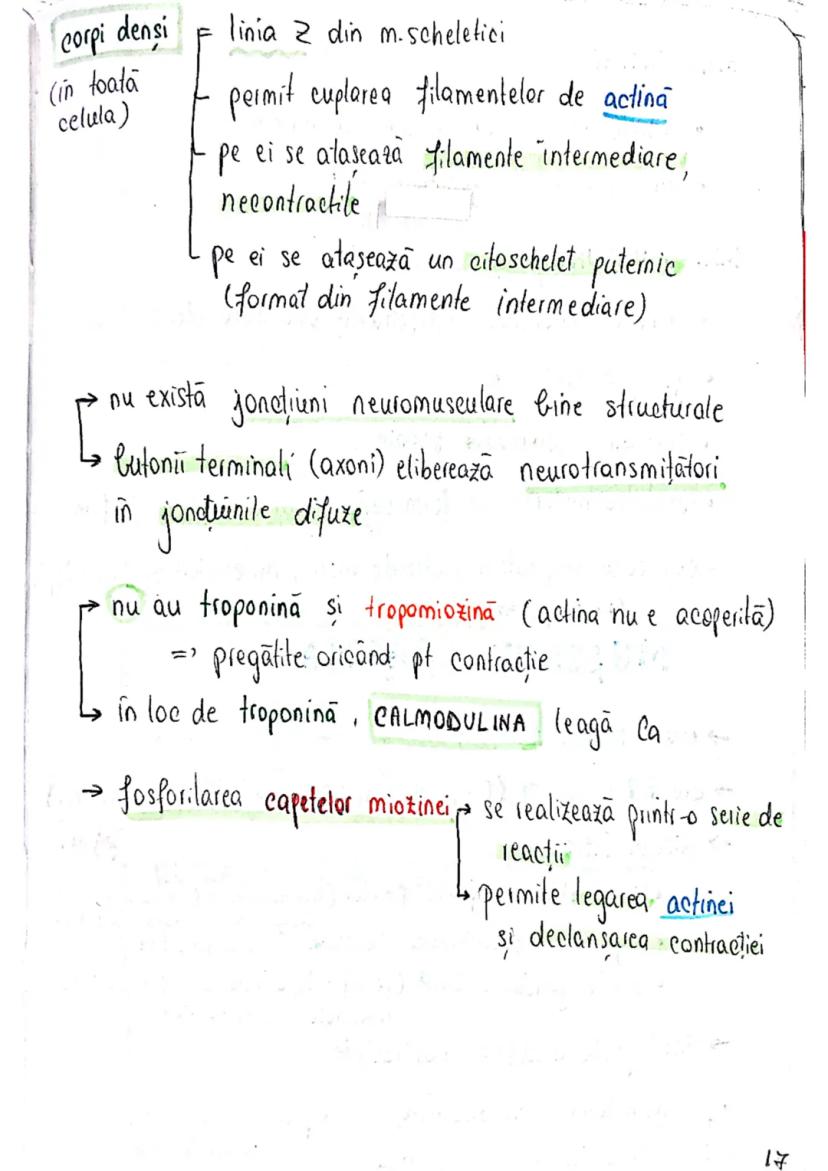 corpi denși = linia Z din m. scheletici
(în toată celula)
- permit cuplarea filamentelor de actină
- pe ei se atașează filamente intermediare,
necontractile
pe ei se atașează un citoschelet puternic
(format din filamente intermediare)
→ nu există joncțiuni neuromusculare bine structurale
→ butonii terminali (axoni) eliberează neurotransmițători
în joncțiunile difuze
→ nu au troponină și tropomiozină (actina nu e acoperită)
=> pregătite oricând pt contracție
→ în loc de troponină, CALMODULINA leagă Ca
→ fosforilarea capetelor miozinei → se realizează printr-o serie de
reacții
→ permite legarea actinei
și declanșarea contracției
17